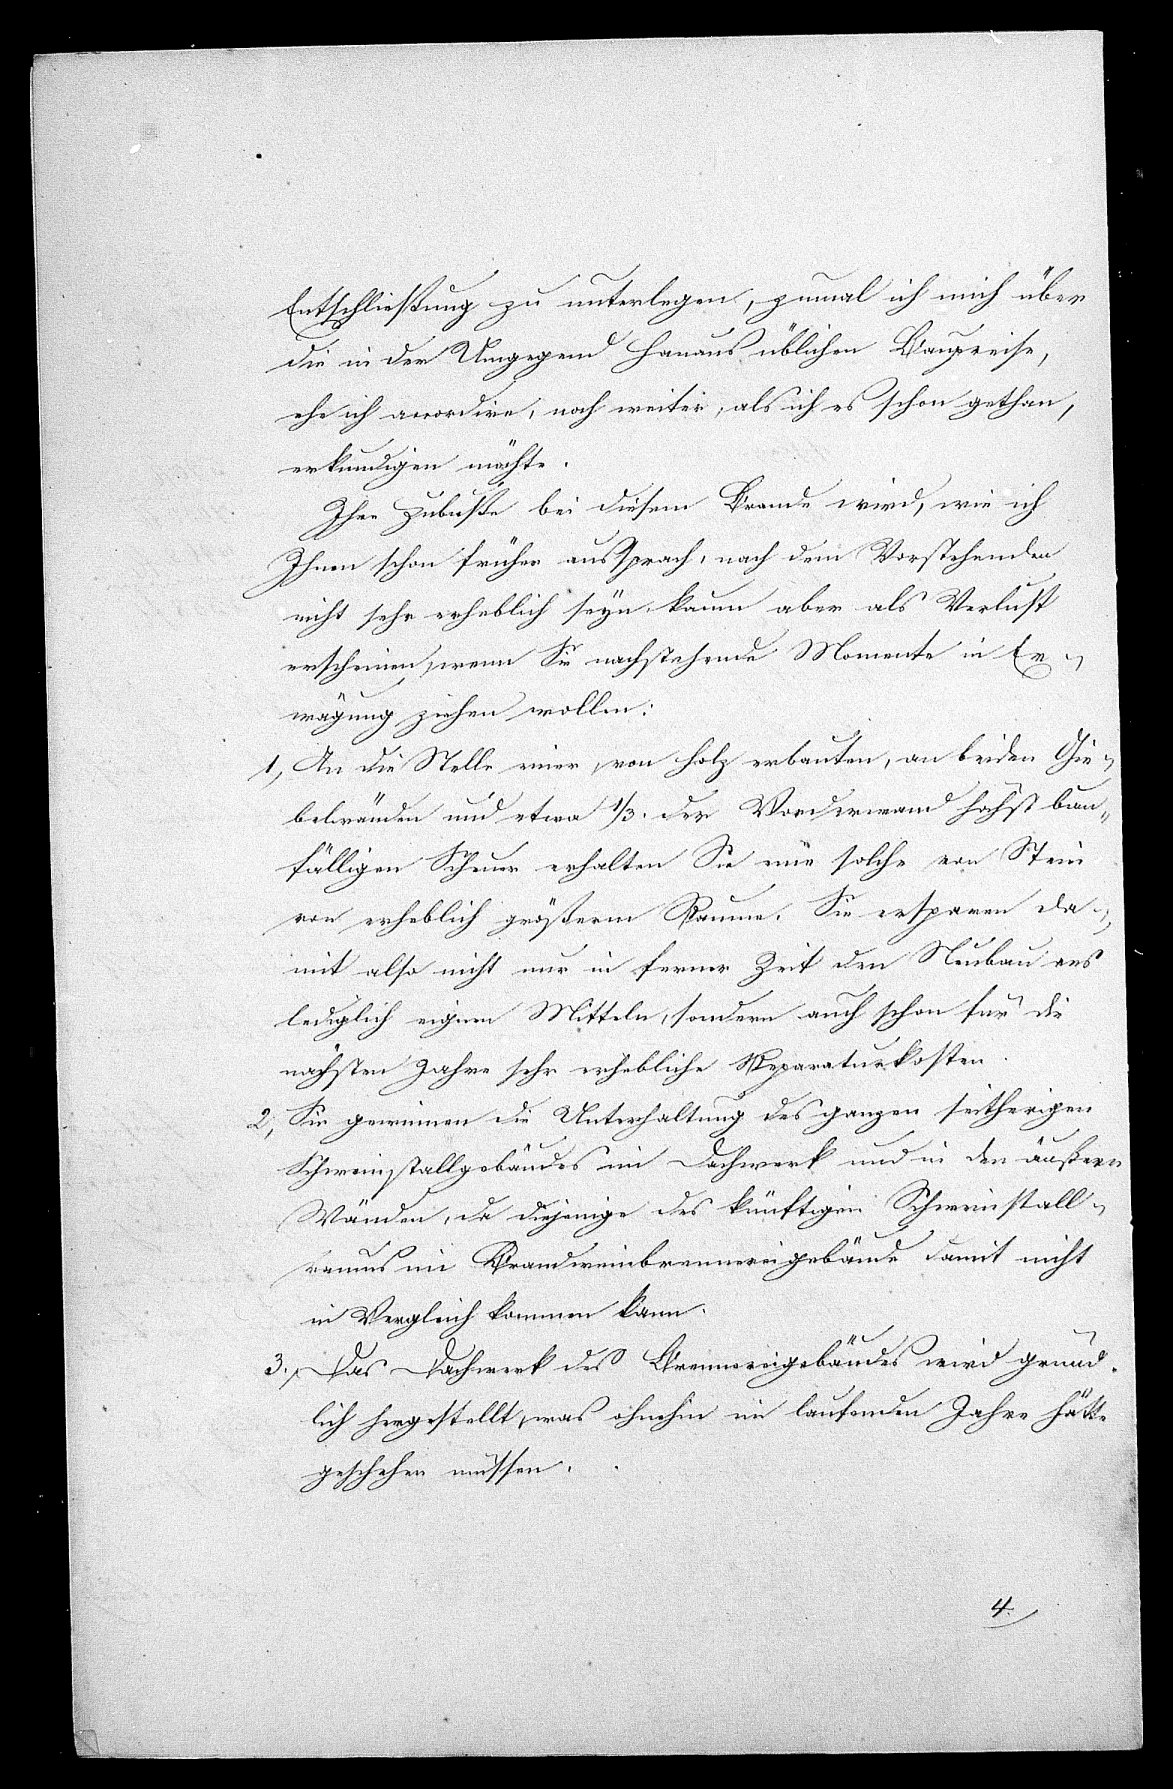 Entschließung zu unterlegen, zumal ich mich über
die in der Umgegend Hanaus üblichen Baupreise,
ehe ich accordire, noch weiter, als ich es schon gethan,
erkundigen möchte.
Ihre Zubuße bei diesem Brande wird, wie ich
Ihnen schon früher aussprach, nach dem Vorstehenden
nicht sehr erheblich seyn, kaum aber als Verlust
erscheinen, wenn Sie nachstehende Momente in Er-
wägung ziehen wollen:
1, An die Stelle einer, von Holz erbauten, an beiden Gie-
belwänden und etwa 1/3. der Vorderwand höchst bau-
fälligen Scheuer erhalten Sie eine solche von Stein
von erheblich größerem Raume. Sie ersparen da-
mit also nicht nur in ferner Zeit den Neubau aus
lediglich eignen Mitteln, sondern auch schon für die
nächsten Jahre sehr erhebliche Reparaturkosten.
2, Sie gewinnen die Unterhaltung des ganzen seitherigen
Schweinstallgebäudes im Dachwerk und in den äußern
Wänden, da diejenige des künftigen Schweinstall-
raums im Brandweinbrennereigebäude damit nicht
in Vergleich kommen kann.
3., Das Dachwerk des Brennereigebäudes wird gründ-
lich hergestellt, was ohnehin im laufenden Jahre hätte
geschehen müssen.
4.